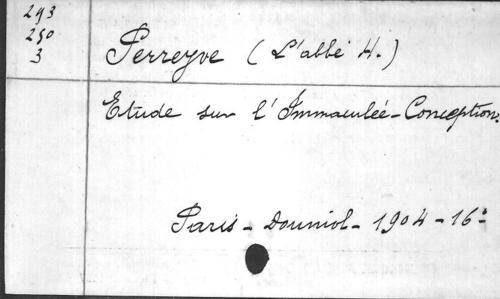 293
250
3
Perreyve (L'abbé H.)
Etude sur l'Immaculée-Conception.
Paris - Douniol - 1904 - 16°